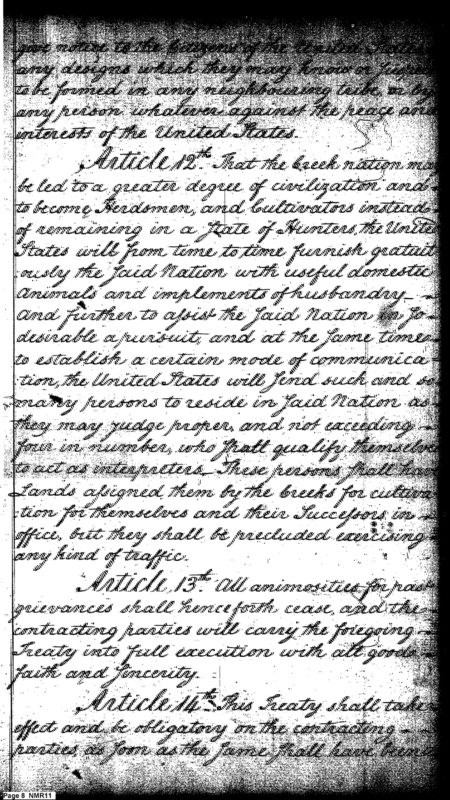 give notice to the Citizens of the United States
any designs which they may know or suspe
to be formed in any neighbouring tribe, or by
any person whatever against the peace and
interests of the United States.
Article 12th. That the Creek nation may
be led to a greater degree of civilization and
to become Herdsmen, and Cultivators instead
of remaining in a State of Hunters, the United
States will from time to time furnish gratuit
ously the said Nation with useful domestic
animals and implements of husbandry_
And further to assist the said Nation in so
desirable a pursuit, and at the same time
to establish a certain mode of communica
tion, the United States will send such and so
many persons to reside in said Nation as
they may judge proper, and not exceeding
four in number, who shall qualify themselve
to act as interpreters_ These persons shall have
Lands assigned them by the Creeks for cultiva
tion for themselves and their Successors in
office, but they shall be precluded exercising
any kind of traffic.
Article 13th. All animosities for past
grievances shall henceforth cease, and the
contracting parties will carry the foregoing
Treaty into full execution with all good
faith and sincerity.
Article 14th. This Treaty shall take
effect and be obligatory on the contracting
parties, as soon as the same shall have been
Page 8 NMR11